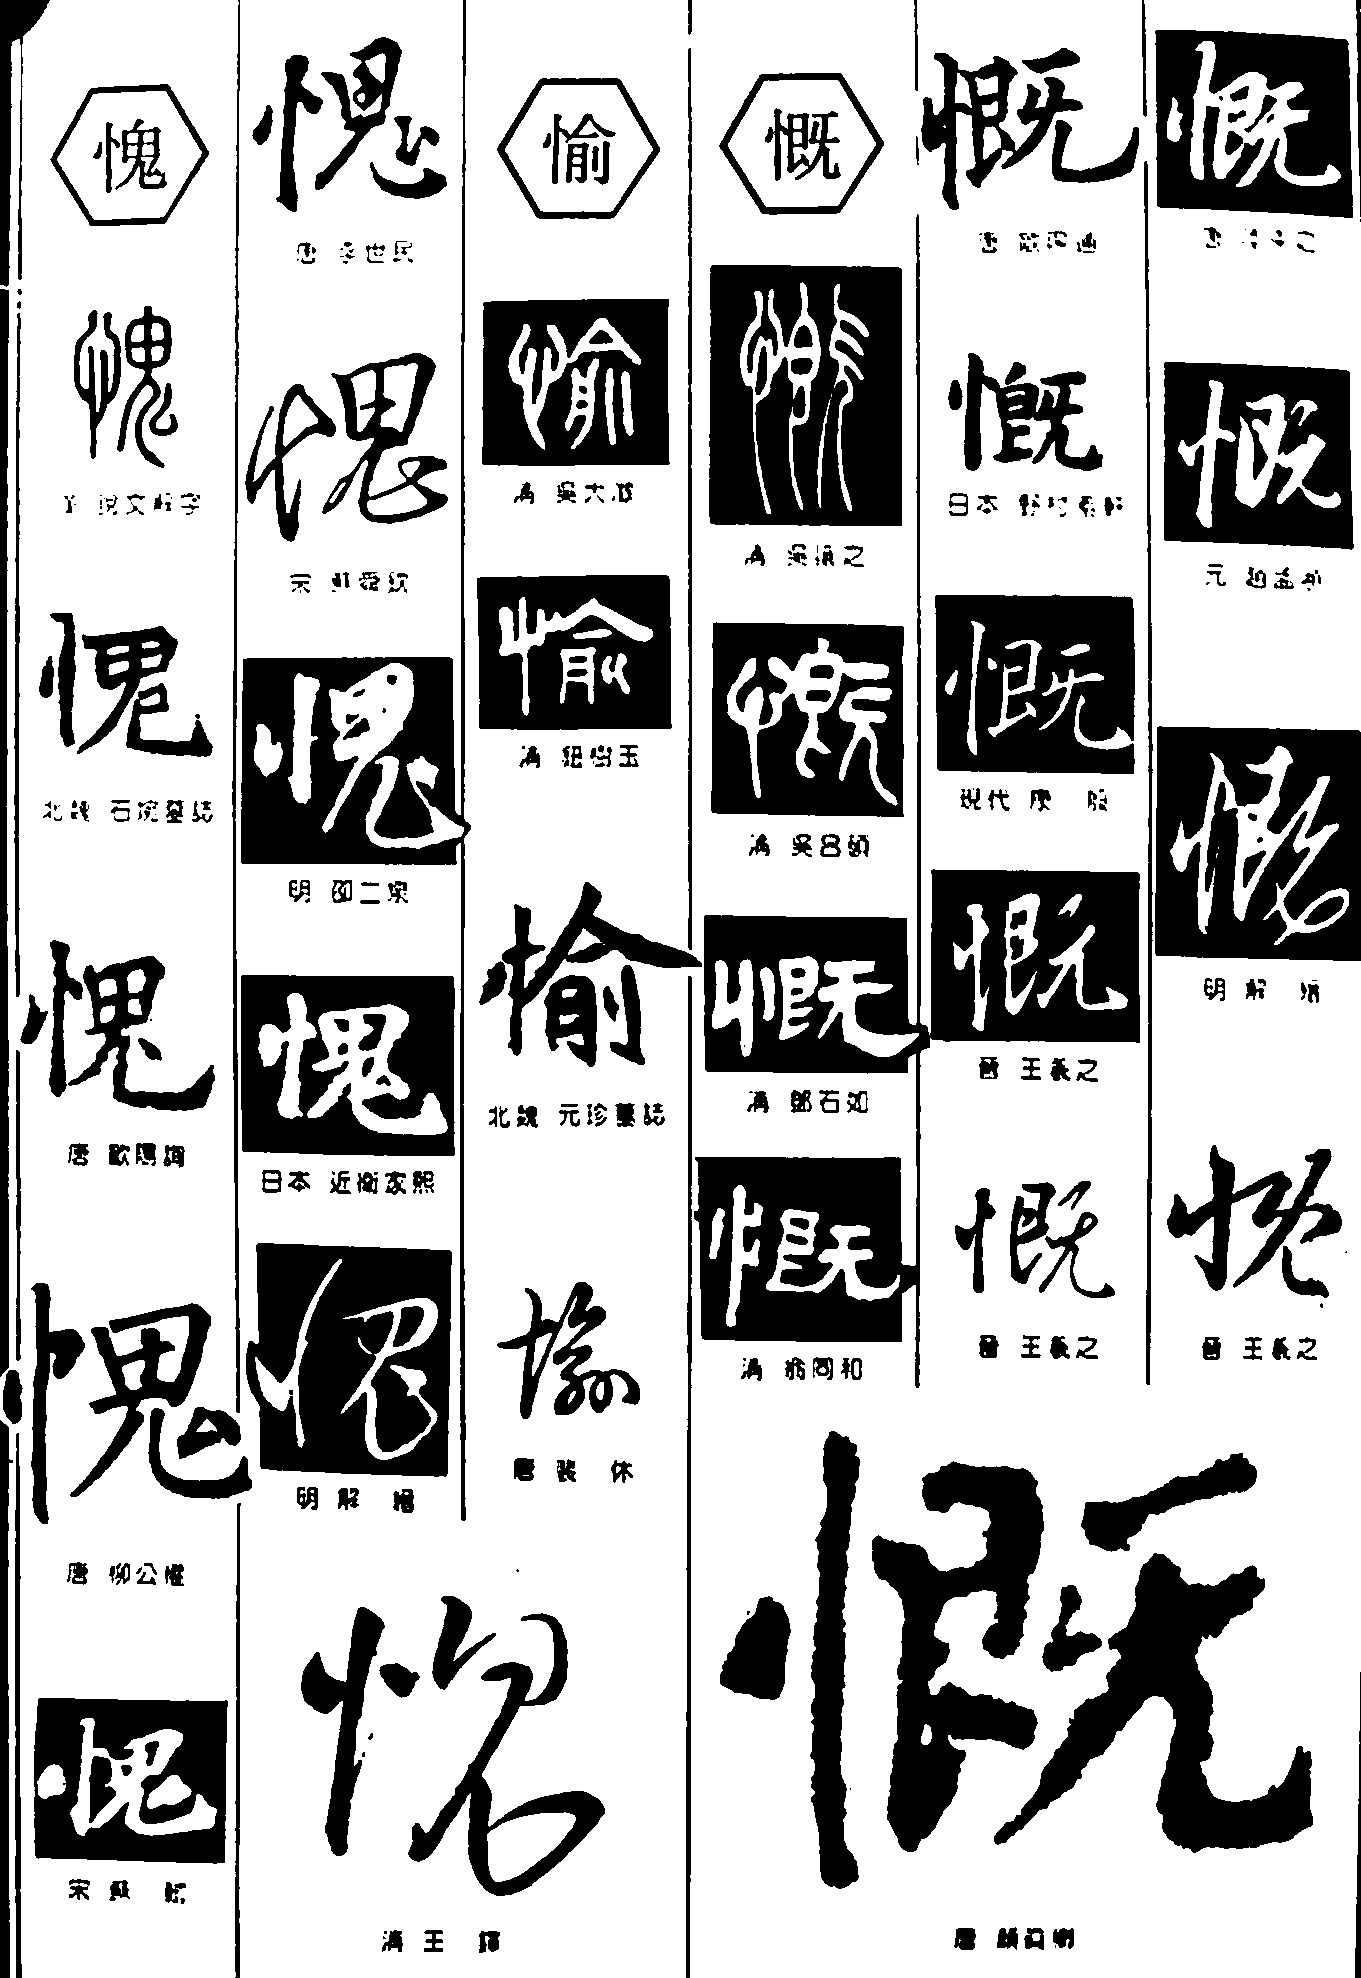 愧
愧
漢 說文解字
愧
北魏 石婉墓誌
愧
唐 歐陽詢
愧
唐 柳公權
愧
宋 蘇 軾
愧
唐 李世民
愧
宋 蘇舜欽
愧
明
愧
日本 近衛家熙
愧
明 解 縉
愧
清 王 鐸
愉
愉
清 吳大澂
愉
清 鈕樹玉
愉
北魏 元珍墓誌
愉
唐 裴 休
慨
慨
清 吳讓之
慨
清 吳昌碩
慨
清 鄧石如
慨
清 翁同和
慨
唐 歐陽通
慨
日本
慨
現代 康 殷
慨
晉 王羲之
慨
晉 王羲之
慨
唐 顏真卿
慨
唐
慨
元 趙孟頫
慨
明 解 縉
慨
晉 王羲之